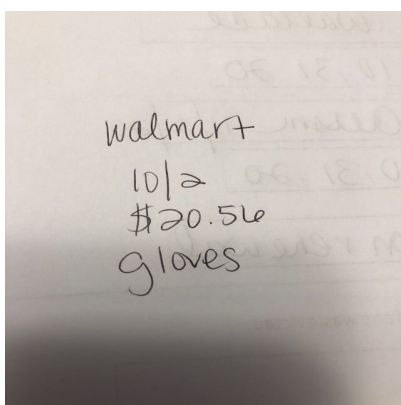 walmart
10/2
$20.56
gloves